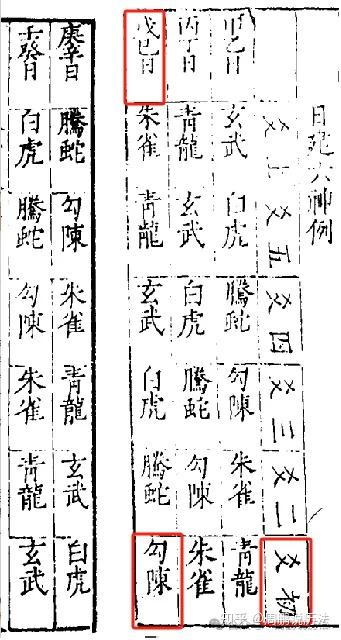 日起六神例
爻上 爻五 爻四 爻三 爻二 爻初
甲乙日 玄武 白虎 騰蛇 勾陳 朱雀 青龍
丙丁日 青龍 玄武 白虎 騰蛇 勾陳 朱雀
戊己日 朱雀 青龍 玄武 白虎 騰蛇 勾陳
庚辛日 騰蛇 勾陳 朱雀 青龍 玄武 白虎
壬癸日 白虎 騰蛇 勾陳 朱雀 青龍 玄武
知乎